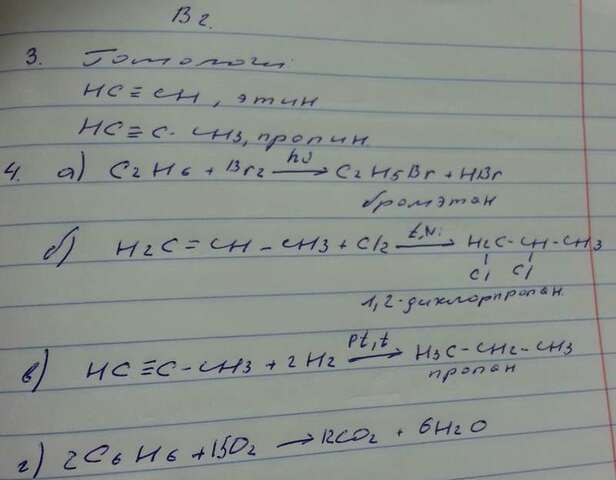 В г.
3. Гомологи:
HC≡CH, этин
HC≡C-CH3, пропин
4. а) C2H6 + Br2 —hυ→ C2H5Br + HBr
бромэтан
б) H2C=CH-CH3 + Cl2 —t,Ni→ H2C-CH-CH3
Cl Cl
1,2-дихлорпропан
в) HC≡C-CH3 + 2H2 —Pt,t→ H3C-CH2-CH3
пропан
г) 2C6H6 + 15O2 → 12CO2 + 6H2O